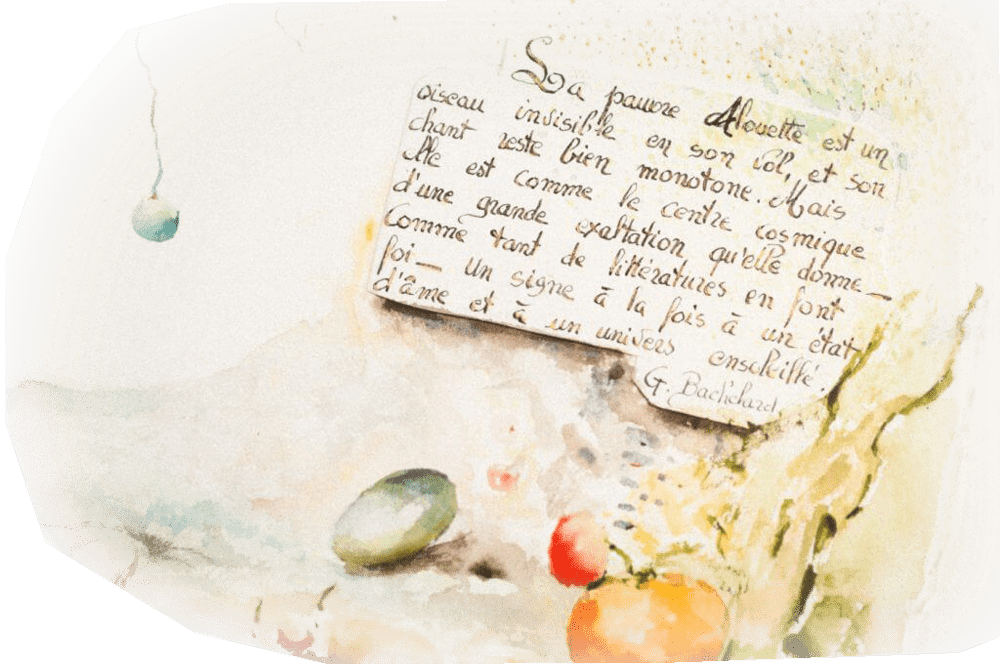 La pauvre Alouette est un
oiseau invisible en son vol, et son
chant reste bien monotone. Mais
elle est comme le centre cosmique
d'une grande exaltation qu'elle donne—
Comme tant de littératures en font
foi— un signe à la fois à un état
d'âme et à un univers ensoleillé.
G. Bachelard.